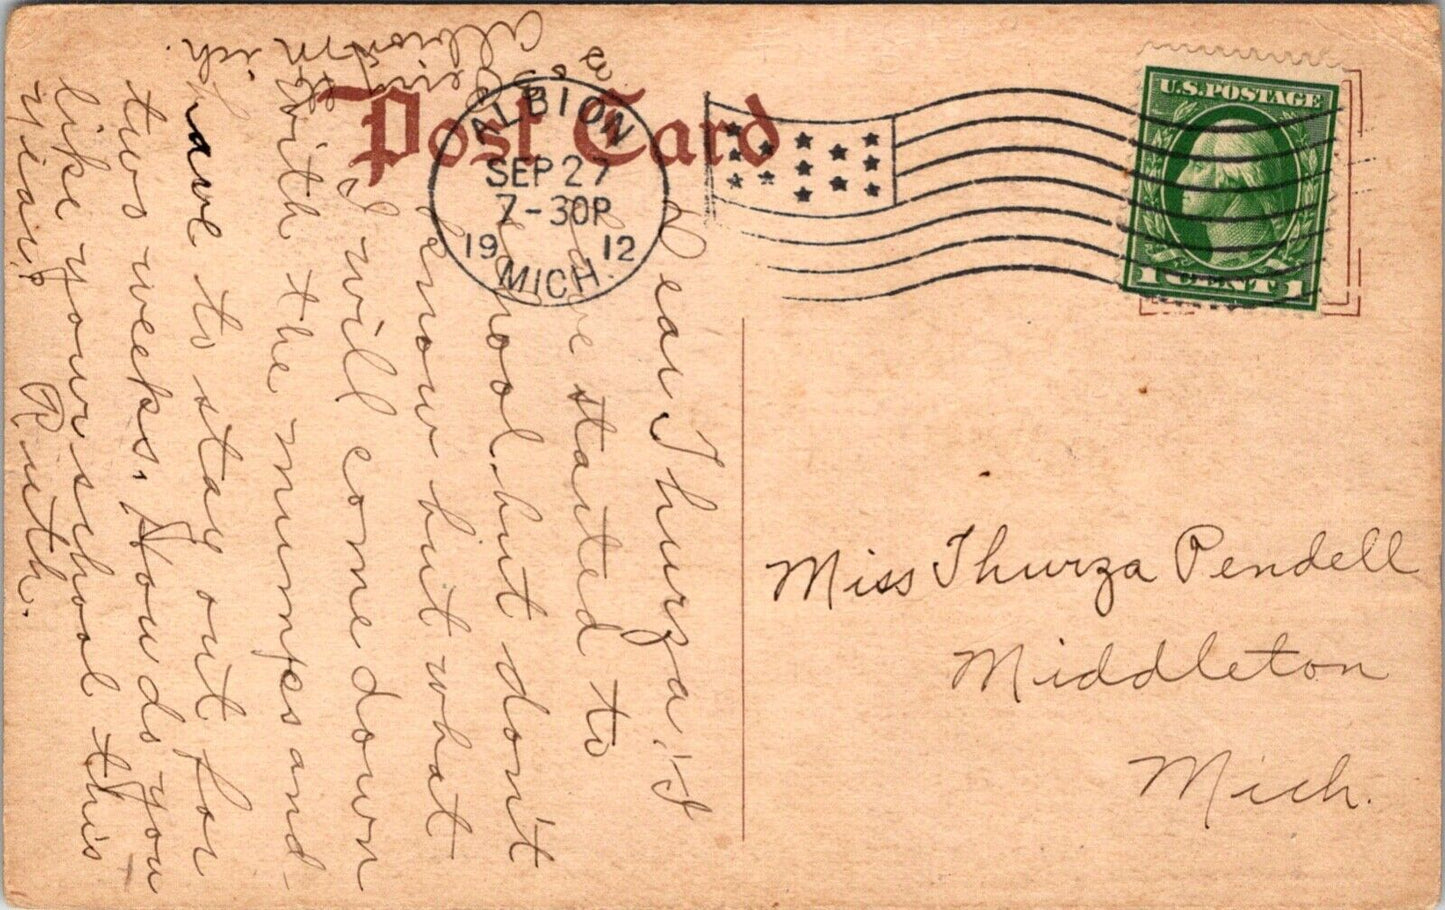 Post Card
ALBION
SEP 27
7-30P
19 12
MICH.
U.S. POSTAGE
1 CENT 1
Albion
Mich.
Dear Thurza: I
have started to
school but don't
know but what
I will come down
with the mumps and
have to stay out for
two weeks. How do you
like your school this
year?
Ruth.
Miss Thurza Pendell
Middleton
Mich.